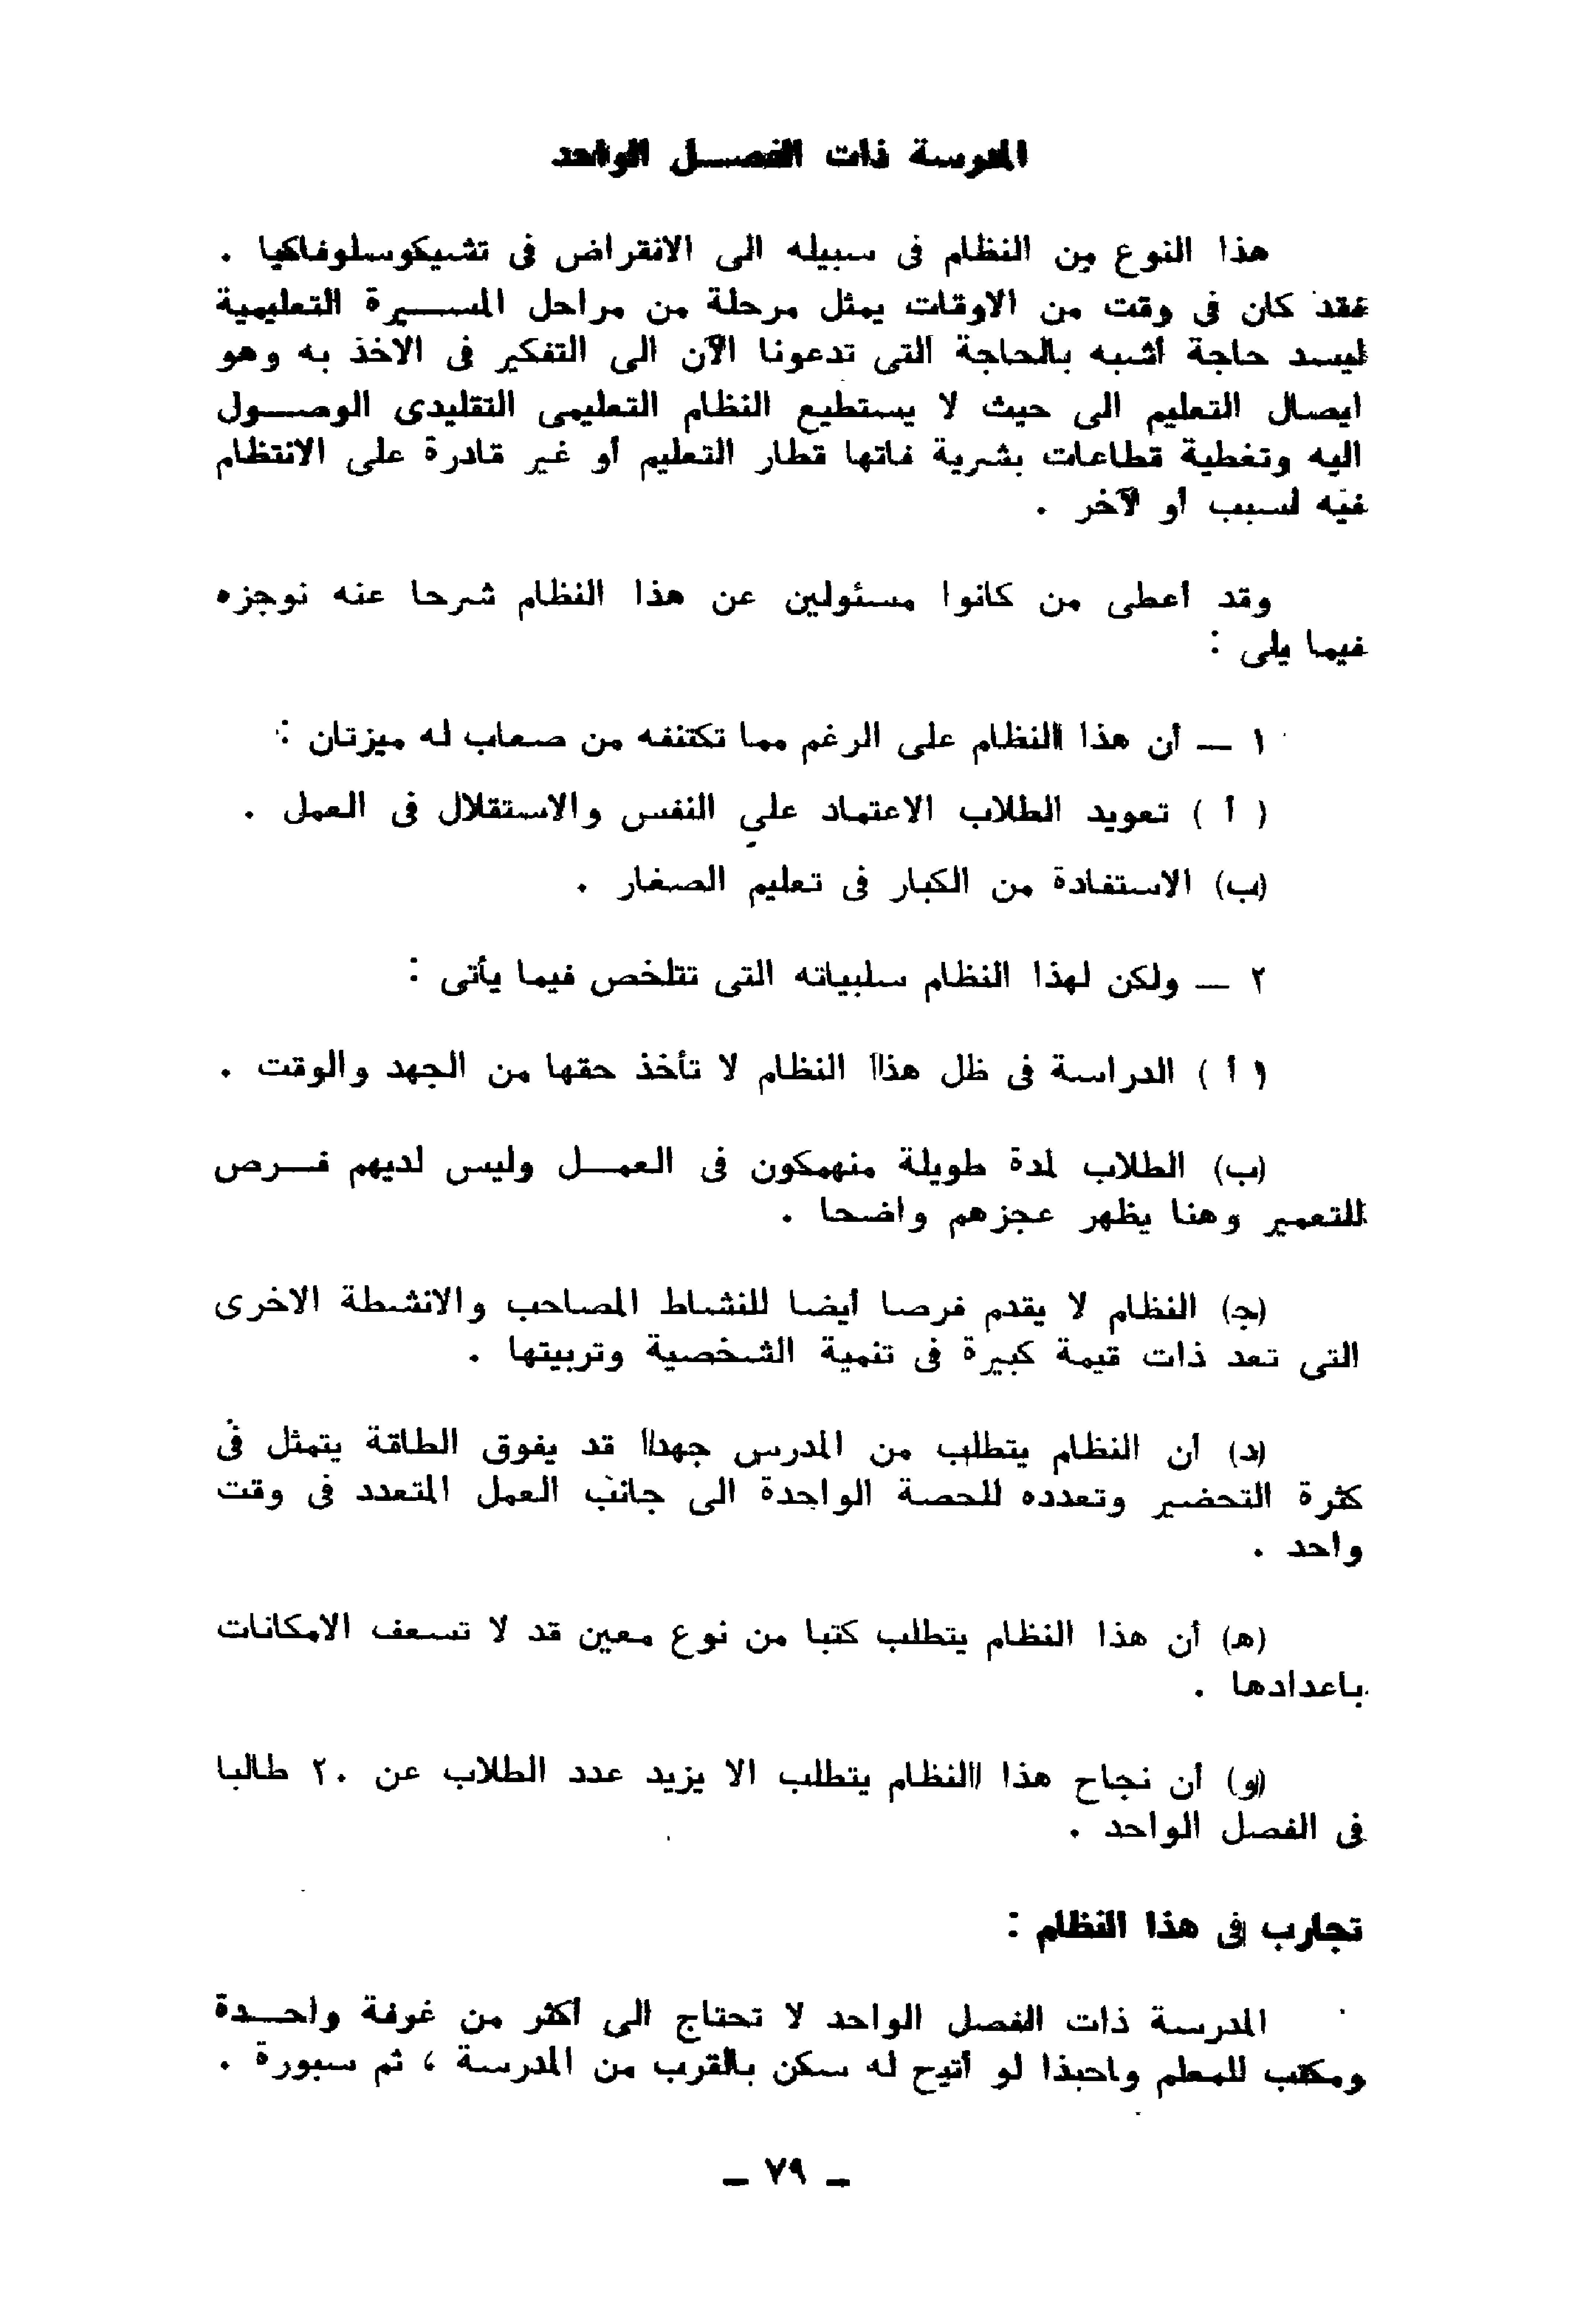 المدرسة ذات الفصل الواحد
هذا النوع من النظام فى سبيله الى الانقراض فى تشيكوسلوفاكيا .
فقد كان فى وقت من الاوقات يمثل مرحلة من مراحل المسيرة التعليمية
ليسد حاجة أشبه بالحاجة التى تدعونا الآن الى التفكير فى الاخذ به وهو
ايصال التعليم الى حيث لا يستطيع النظام التعليمى التقليدى الوصول
اليه وتغطية قطاعات بشرية فاتها قطار التعليم أو غير قادرة على الانتظام
فيه لسبب أو لآخر .
وقد أعطى من كانوا مسئولين عن هذا النظام شرحا عنه نوجزه
فيما يلى :
١ — أن هذا النظام على الرغم مما تكتنفه من صعاب له ميزتان :
( أ ) تعويد الطلاب الاعتماد على النفس والاستقلال فى العمل .
(ب) الاستفادة من الكبار فى تعليم الصغار .
٢ — ولكن لهذا النظام سلبياته التى تتلخص فيما يأتى :
( أ ) الدراسة فى ظل هذا النظام لا تأخذ حقها من الجهد والوقت .
(ب) الطلاب لمدة طويلة منهمكون فى العمل وليس لديهم فرص
للتعمير وهنا يظهر عجزهم واضحا .
(ج) النظام لا يقدم فرصا أيضا للنشاط المصاحب والانشطة الاخرى
التى تعد ذات قيمة كبيرة فى تنمية الشخصية وتربيتها .
(د) أن النظام يتطلب من المدرس جهدا قد يفوق الطاقة يتمثل فى
كثرة التحضير وتعدده للحصة الواحدة الى جانب العمل المتعدد فى وقت
واحد .
(هـ) أن هذا النظام يتطلب كتبا من نوع معين قد لا تسعف الامكانات
باعدادها .
(و) أن نجاح هذا النظام يتطلب الا يزيد عدد الطلاب عن ٢٠ طالبا
فى الفصل الواحد .
تجارب فى هذا النظام :
المدرسة ذات الفصل الواحد لا تحتاج الى أكثر من غرفة واحدة
ومكتب للمعلم واحبذا لو أتيح له سكن بالقرب من المدرسة ، ثم سبورة .
— ٧٩ —